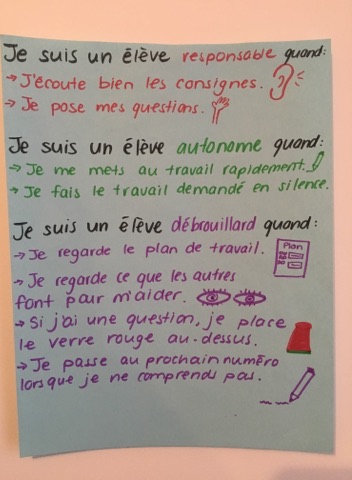 Je suis un élève responsable quand:
→ J'écoute bien les consignes.
→ Je pose mes questions.
Je suis un élève autonome quand:
→ Je me mets au travail rapidement.
→ Je fais le travail demandé en silence.
Je suis un élève débrouillard quand:
→ Je regarde le plan de travail.
Plan
→ Je regarde ce que les autres
font pour m'aider.
→ Si j'ai une question, je place
le verre rouge au-dessus.
→ Je passe au prochain numéro
lorsque je ne comprends pas.